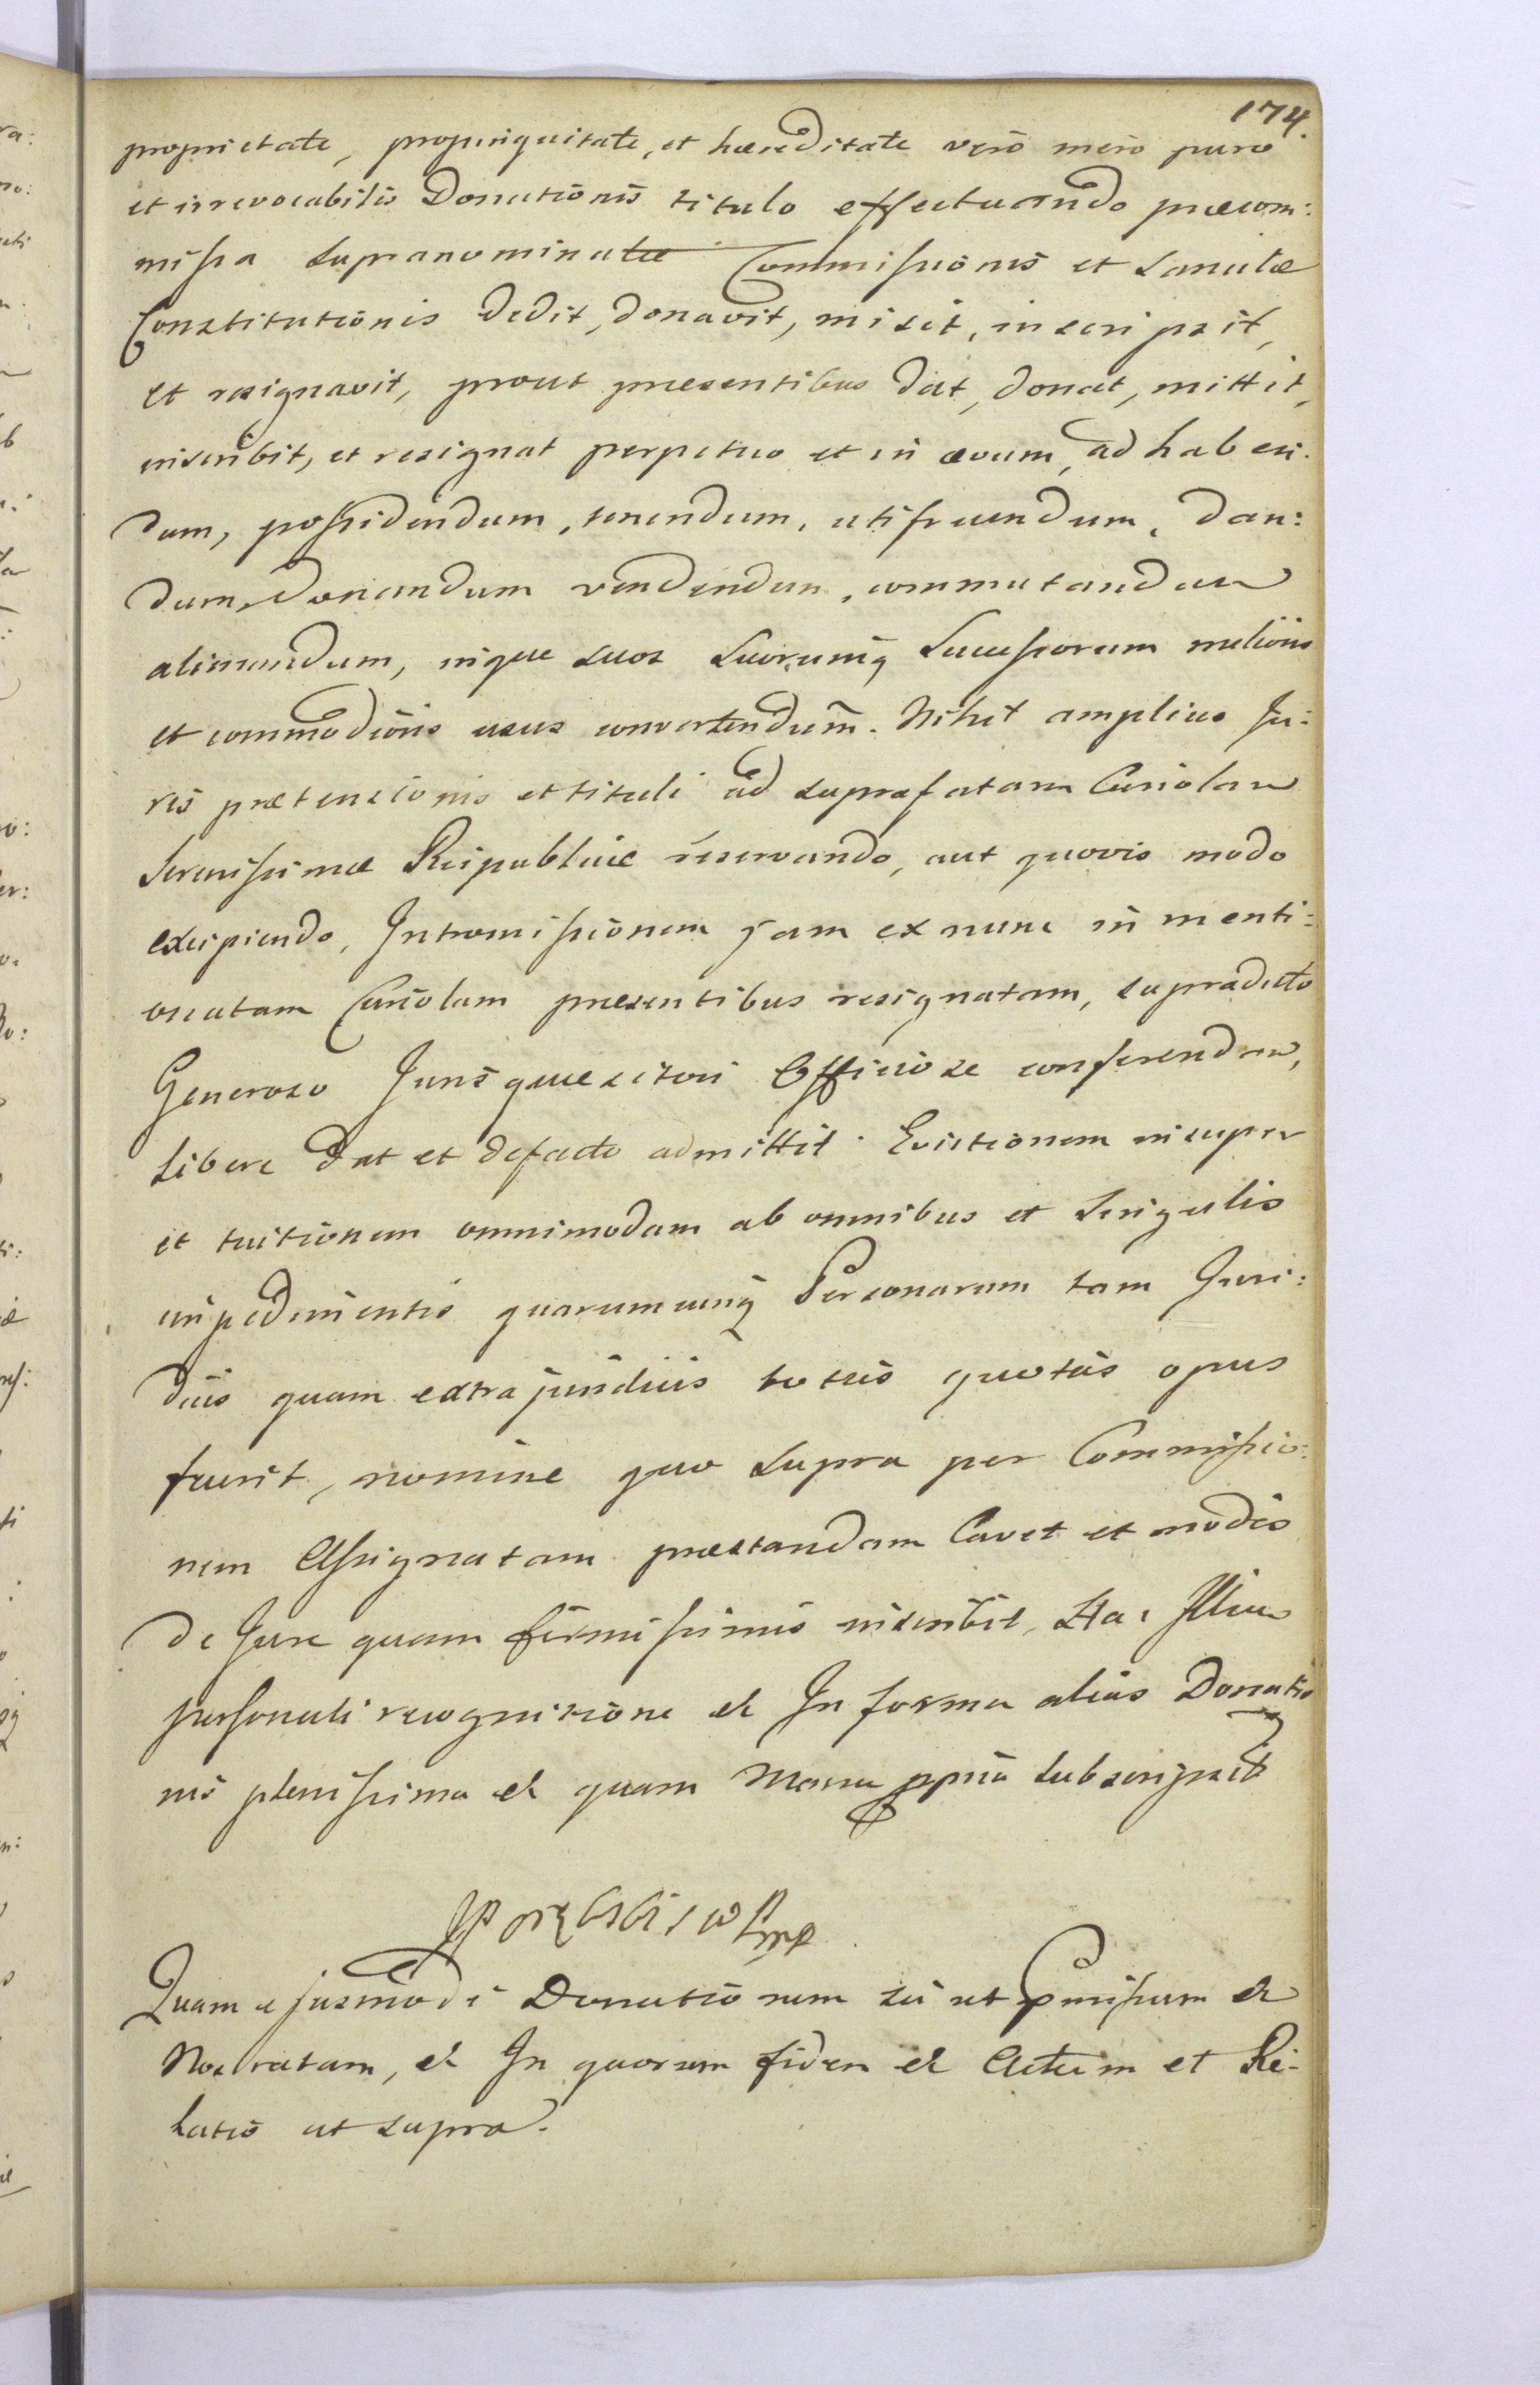 174.
proprietate, propinquitate, et hæreditate verò merò puro
et irrevocabilis Donationis titulo effectuando præcom:
missa supranominatæ Commissionis et Sancitæ
Constitutionis dedit, donavit, misit, inscripsit,
et resignavit, prout præsentibus dat, donat, mittit,
inscribit, et resignat perpetuo et in ævum, ad haben:
dum, possidendum, tenendum, utifruendum, dan:
dum, donandum vendendum, commutandum
alienandum, inque suos suorumq Successorum melioris
et commodioris usus convertendum. Nihil amplius Ju:
ris prætensionis et tituli ad suprafatam Curiolam
Serenissimæ Reipublicæ reservando, aut quovis modo
excipiendo, Intromissionem jam ex nunc in menti:
onatam Curiolam præsentibus resignatam, supradicto
Generoso Jurisquæsitori Officiose conferendam,
libere dat et defacto admittit. Evictionem insuper
et tuitionem omnimodam ab omnibus et singulis
impedimentis quarumcunq Personarum tam Juri:
dicis quam extrajuridicis toties quoties opus
fuerit, nomine quo supra per Commissio:
nem Assignatam præstandam Cavet et modis
de Jure quam firmissimis inscribit, Hac Illius
personali recognitione et In forma alias Donatio
nis plenissima et quam Manu ppria subscripsit
Quam ejusmodi Donationem sic ut pmissum et
Nos ratam, et In quorum fidem et Actum et Re-
latio ut supra.